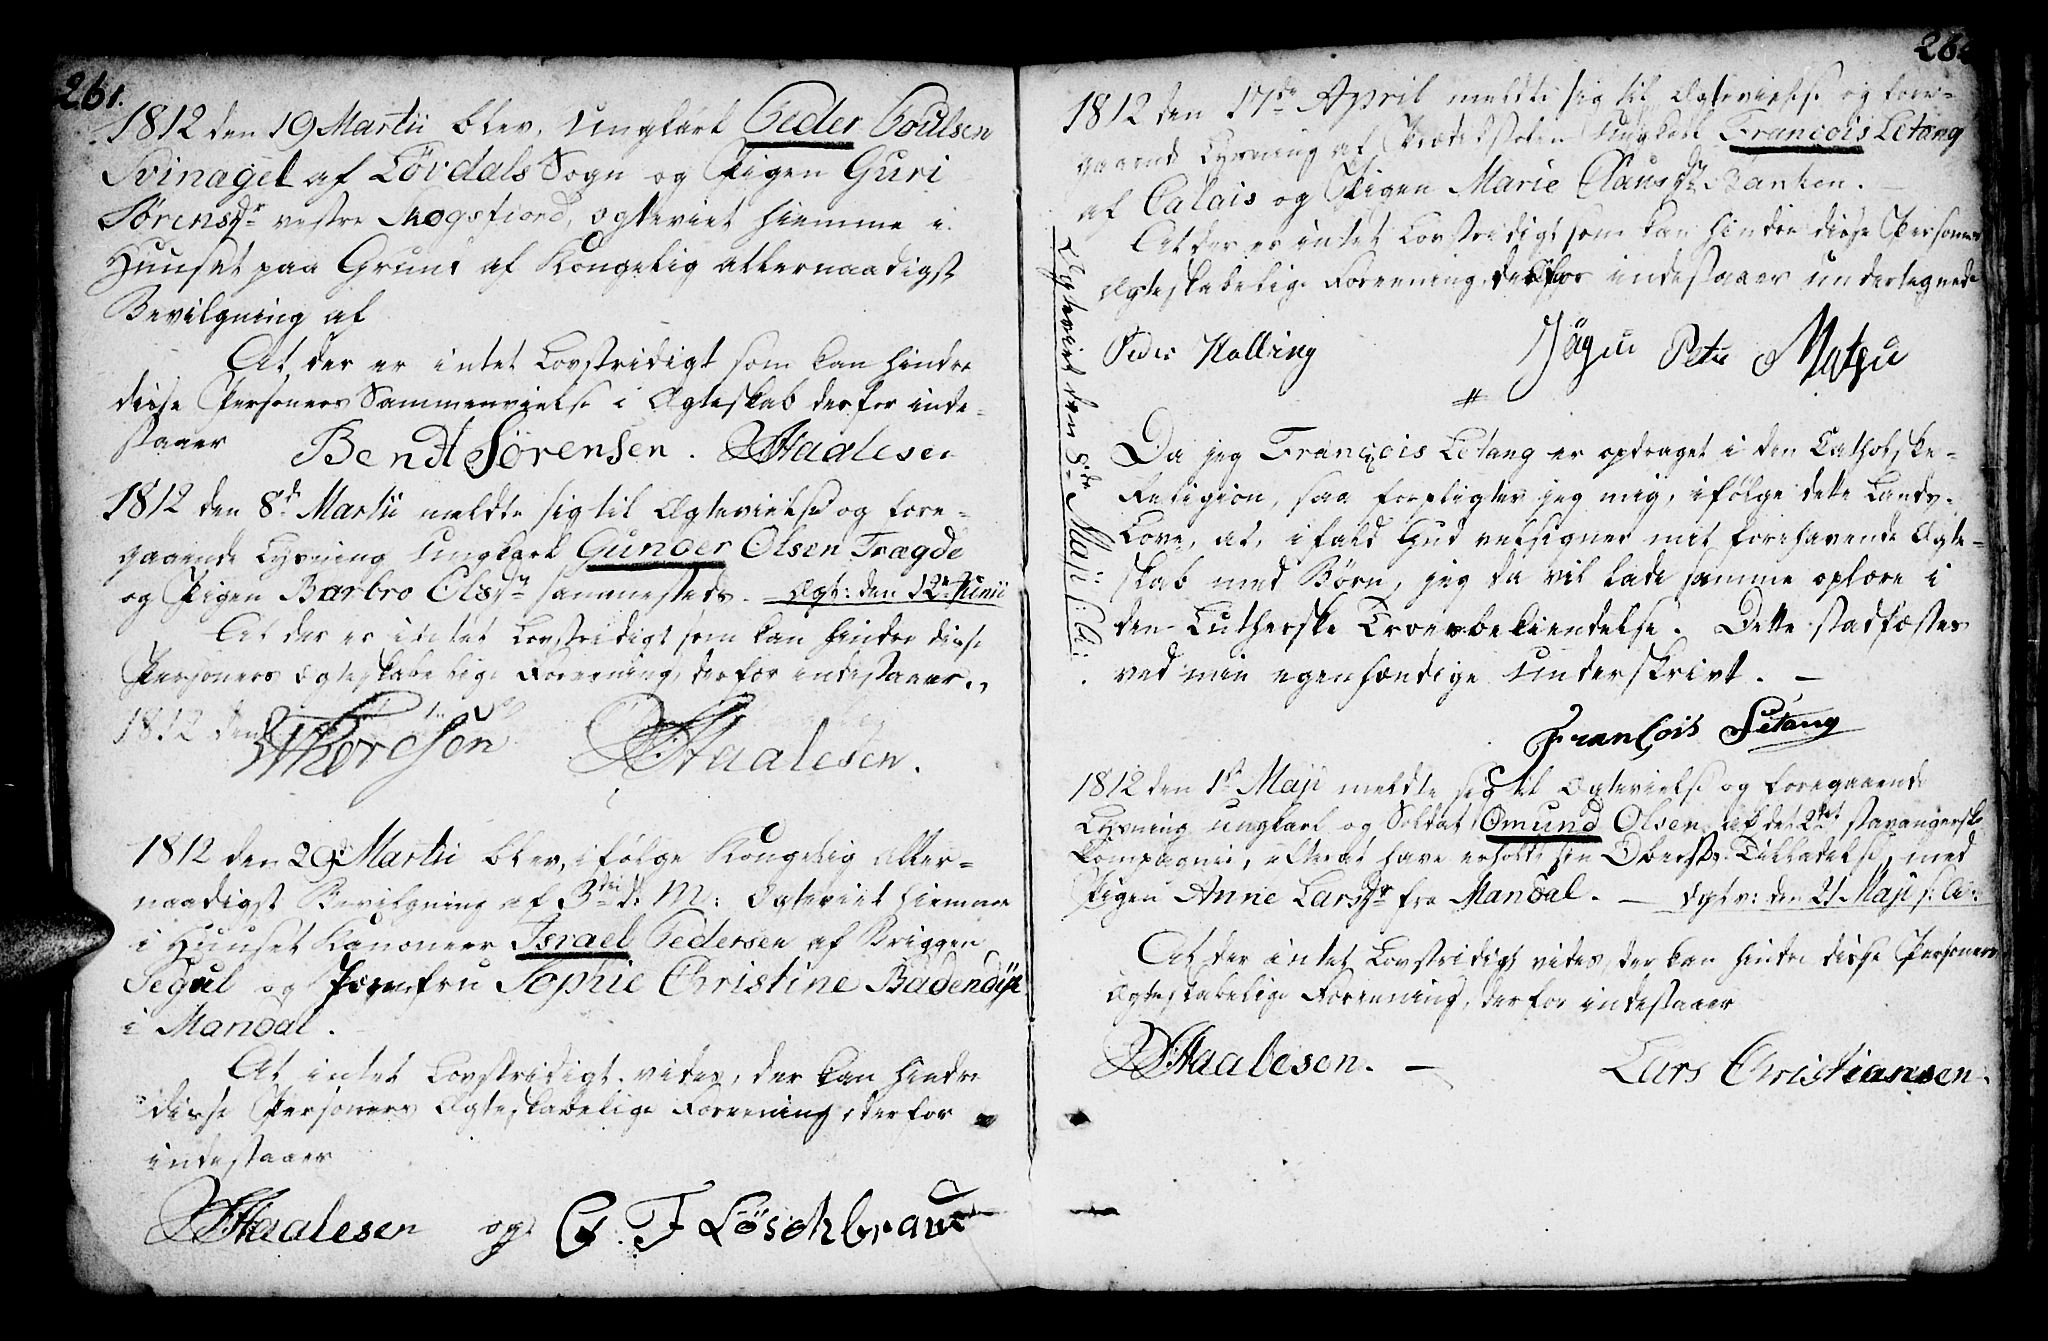 261.
1812 den 19 Martii blev Ungkarl Peder Poulsen
Svinagel af Løvdals Sogn og Pigen Guri
Sørensdr vestre Skogsfiord, ægteviet hiemme i
Huuset paa Grund af Kongelig allernaadigst
Bevilgning af
At der er intet Lovstridigt som kan hindre
disse Personers Sammenvielse i Ægteskab derfor inde-
staaer Bendt Sørensen. Haalesen
1812 den 8d Martii meldte sig til Ægtevielse og fore-
gaaende Lysning Ungkarl Gunder Olsen Trægde
og Pigen Barbro Olsdr sammesteds. – Ægt: den 12te Junii
At der er intet Lovstridigt som kan hindre disse
Personers ægteskabelige Foreening, derfor indestaaer.,
1812 den Thoresen Haalesen.
1812 den 29d Martii blev, ifølge Kongelig aller-
naadigst Bevilgning af 3die d: M: ægteviet hiemme
i Huuset Kanoneer Israel Pedersen af Briggen
Segul og Jomfru Sophie Christine Badendiik
i Mandal.
At intet Lovstridigt vides, der kan hindre
disse Personers Ægteskabelige Foreening, derfor
indestaaer
Haalesen og C. F Löschbrau
262
1812 den 17de April meldte sig til Ægtevielse og fore-
gaaende Lysning af Prædikstolen Ungkarl Francois Letang
af Calais og Pigen Marie Clausdr Banken. –
At der er intet Lovstridigt som kan hindre disse Personers
Ægteskabelige Foreening, derfor indestaaer undertegnede
Peder Halling Jäger Peter
#
Da jeg François Letang er opdraget i den Catholske
Religion, saa forpligter jeg mig, ifølge dette Lands
Love, at, ifald Gud velsigner mit forehavende Ægte-
skab med Børn, jeg da vil lade samme oplære i
den Lutherske Troesbekiendelse. Dette stadfæstes
ved min egenhændige Underskrivt. –
François Letang
Ægteviet den 8de Maji s: A:
1812 den 1st Maji meldte sig til Ægtevielse og foregaaende
Lysning Ungkarl og Soldat Omund Olsen af det 2det stavangerske
Compagnie, efter at have erholdt sin Obersts Tilladelse, med
Pigen Anne Larsdr fra Mandal. – Ægtv: den 21 Maji s: A:
At der intet Lovstridigt vides, der kan hindre disse Personers
Ægteskabelige Foreening, derfor indestaaer
Haalesen. – Lars Christiansen.